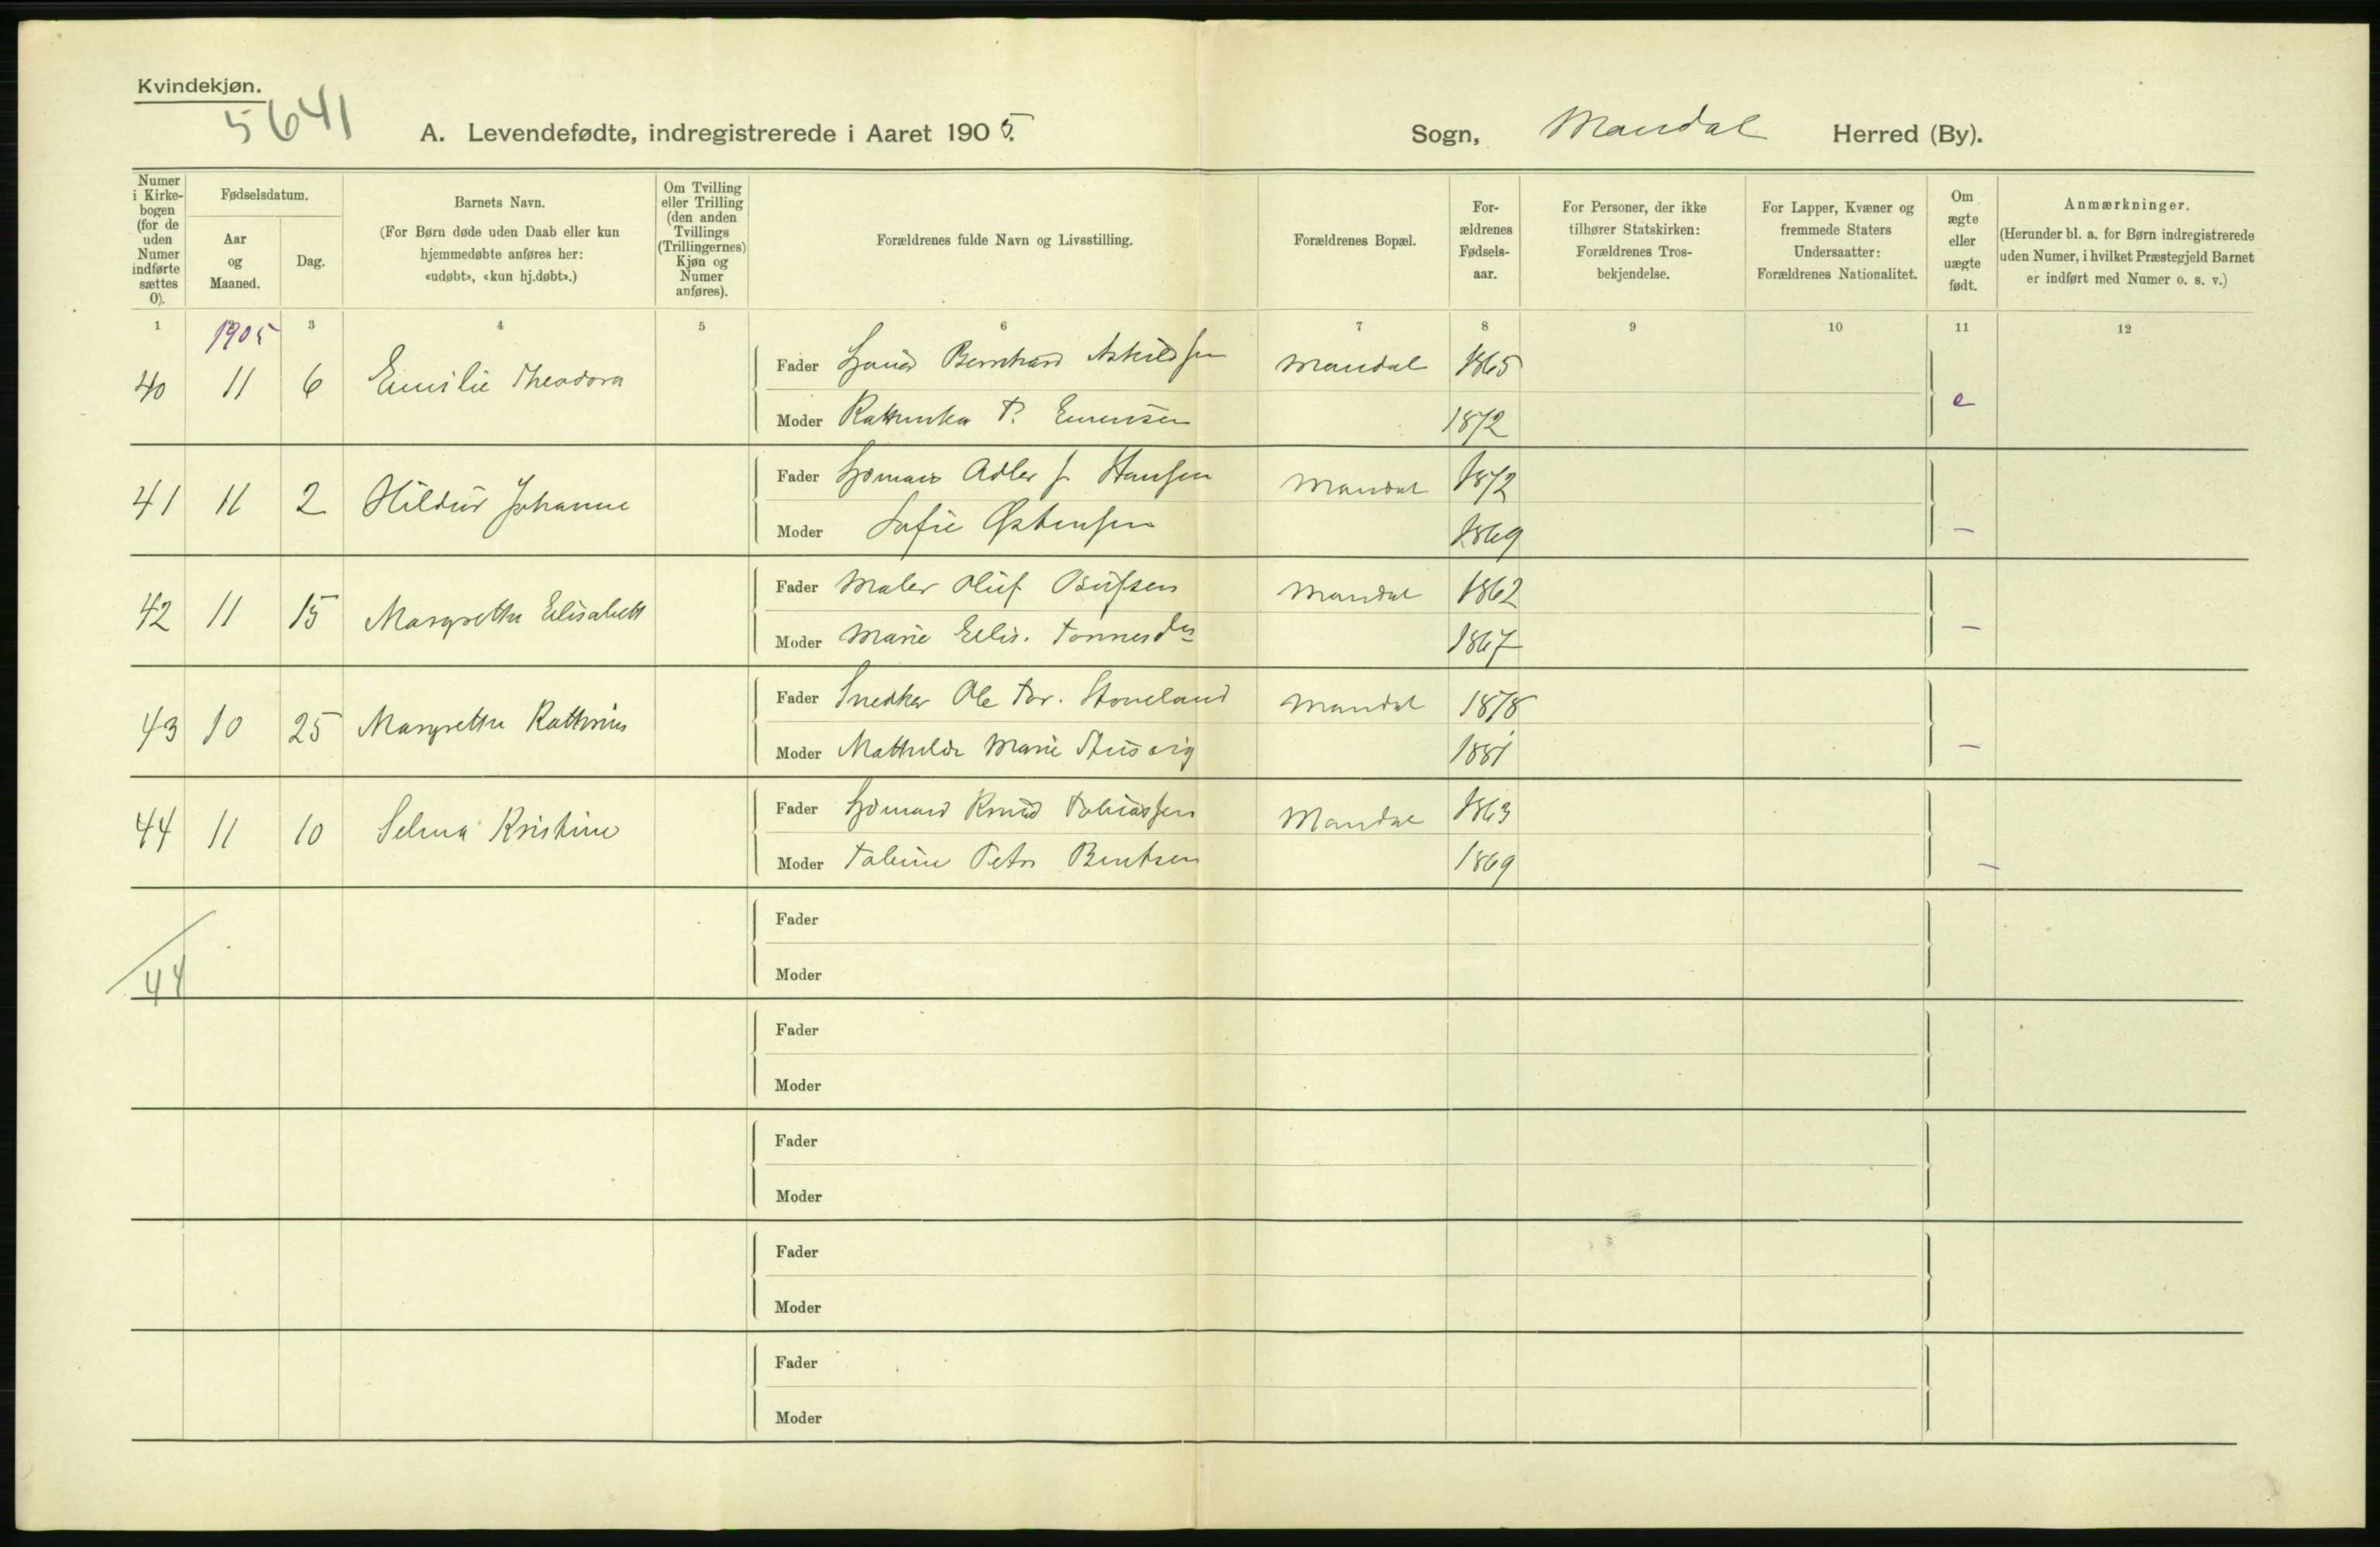 Kvindekjøn.
5641
A. Levendefødte, indregistrerede i Aaret 1905.
Sogn, Mandal Herred (By).
Numer i Kirkebogen (for de uden Numer indførte sættes 0).
Fødselsdatum.
Aar og Maaned.
Dag.
Barnets Navn.
(For Børn døde uden Daab eller kun hjemmedøbte anføres her: «udøbt», «kun hj.døbt».)
Om Tvilling eller Trilling (den anden Tvillings (Trillingernes) Kjøn og Numer anføres).
Forældrenes fulde Navn og Livsstilling.
Forældrenes Bopæl.
Forældrenes Fødselsaar.
For Personer, der ikke tilhører Statskirken: Forældrenes Trosbekjendelse.
For Lapper, Kvæner og fremmede Staters Undersaatter: Forældrenes Nationalitet.
Om ægte eller uægte født.
Anmærkninger.
(Herunder bl. a. for Børn indregistrerede uden Numer, i hvilket Præstegjeld Barnet er indført med Numer o. s. v.)
1 3 4 5 6 7 8 9 10 11 12
1905
40 11 6 Emilie Theodora
Fader Bernhard Askildsen Mandal 1865
Moder P. 1872
e
41 11 2 Hildur Johanne
Fader Sømand Adler Hansen Mandal 1872
Moder Sofie Østensen 1869
–
42 11 15 Margrethe Elisabeth
Fader Maler Oluf Mandal 1862
Moder Marie Elis. Tønnesdtr 1867
–
43 10 25 Margrethe Kathrine
Fader Snedker Ole Tor. Mandal 1878
Moder Mathilde Marie 1881
–
44 11 10 Selma Kristine
Fader Sømand Knud Tobiassen Mandal 1863
Moder Petra Bentsen 1869
–
Fader
44
Moder
Fader
Moder
Fader
Moder
Fader
Moder
Fader
Moder